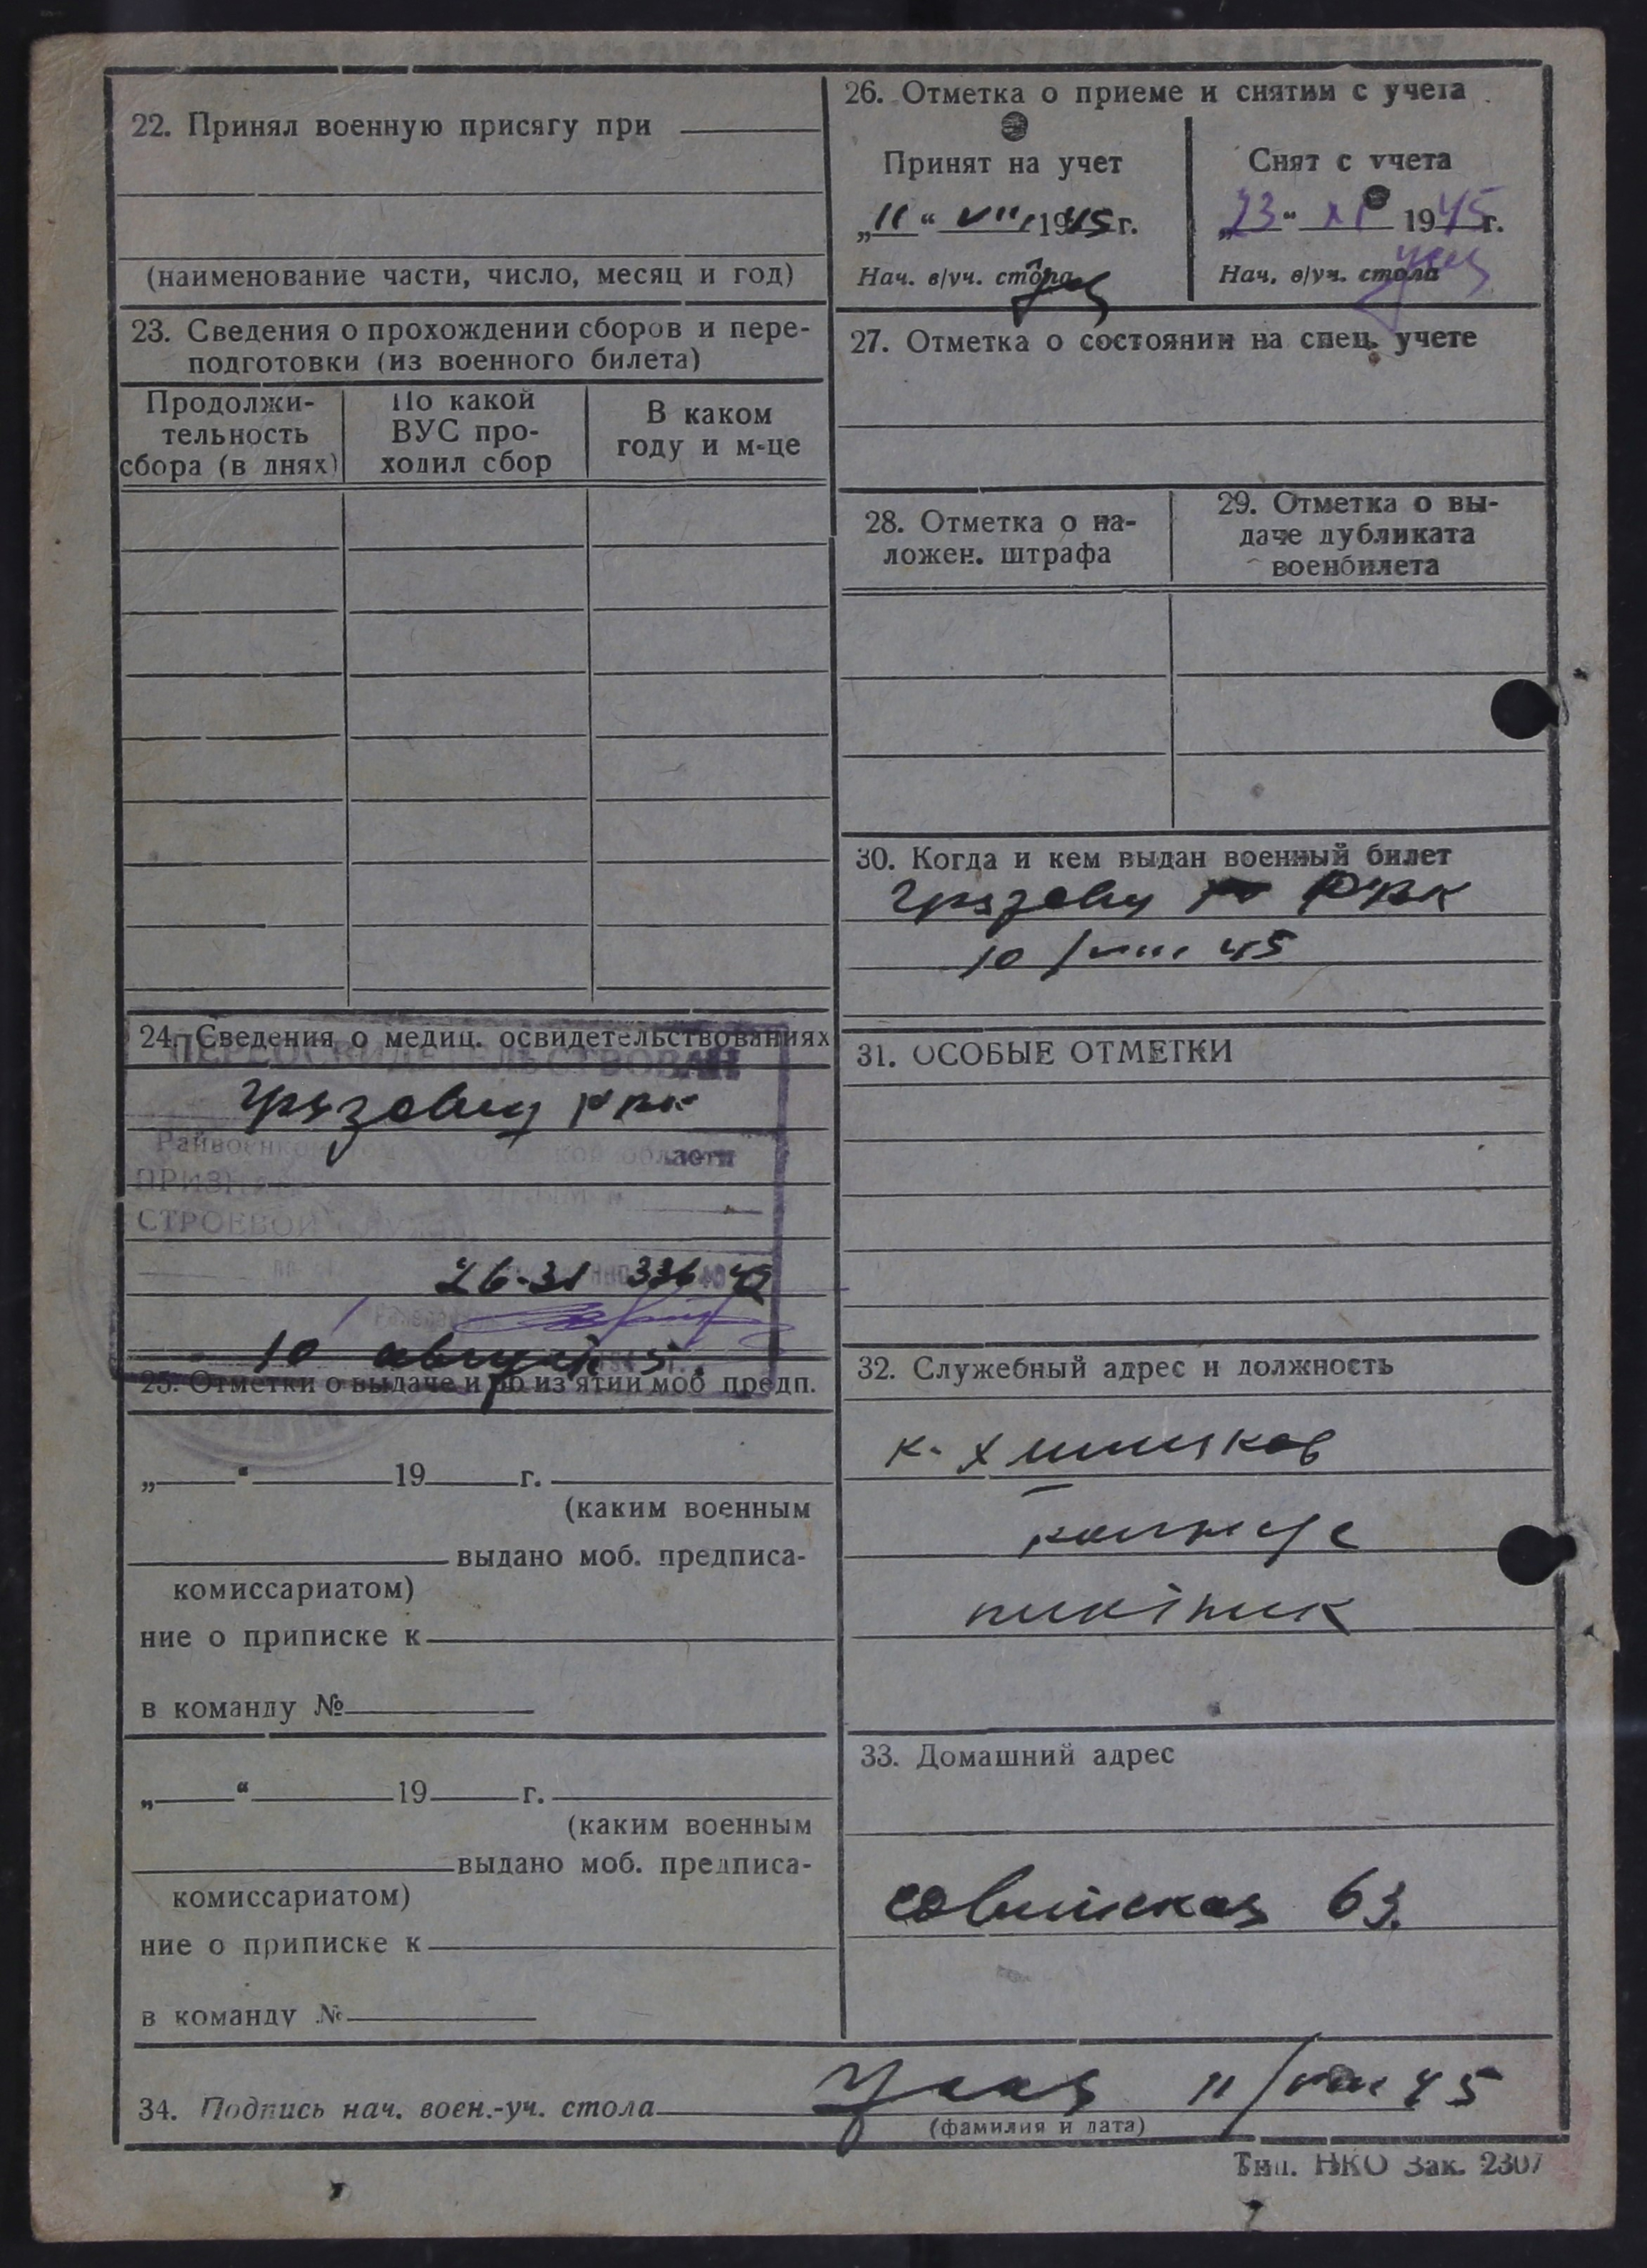 22. Принял военную присягу при
(наименование части, число, месяц и год)
23. Сведения о прохождении сборов и пере-
подготовки (из военного билета)
Продолжи-
тельность
сбора (в днях)
По какой
ВУС про-
ходил сбор
В каком
году и м-це
24. Сведения о медиц. освидетельствованиях
ПЕРЕОСВИДЕТЕЛЬСТВОВАН
Грязовец РВК
Райвоенком
области
СТРОЕВОЙ
26-31 336 42
10 август 5
25. Отметки о выдаче и об из'ятии моб предп.
„ “ 19 г.
(каким военным
выдано моб. предписа-
комиссариатом)
ние о приписке к
в команду №
„ “ 19 г.
(каким военным
выдано моб. предписа-
комиссариатом)
ние о приписке к
в команду №
26. Отметка о приеме и снятии с учета
Принят на учет
„11“ VIII 1945г.
Нач. в/уч. стола
Снят с учета
„23“ XI 1945г.
Нач. в/уч. стола
27. Отметка о состоянии на спец. учете
28. Отметка о на-
ложен. штрафа
29. Отметка о вы-
даче дубликата
военбилета
30. Когда и кем выдан военный билет
Грязовец РВК
10/VIII 45
31. ОСОБЫЕ ОТМЕТКИ
32. Служебный адрес и должность
к-х
33. Домашний адрес
советская 63.
34. Подпись нач. воен.-уч. стола 11/VIII 45
(фамилия и дата)
Тип. НКО Зак. 2307